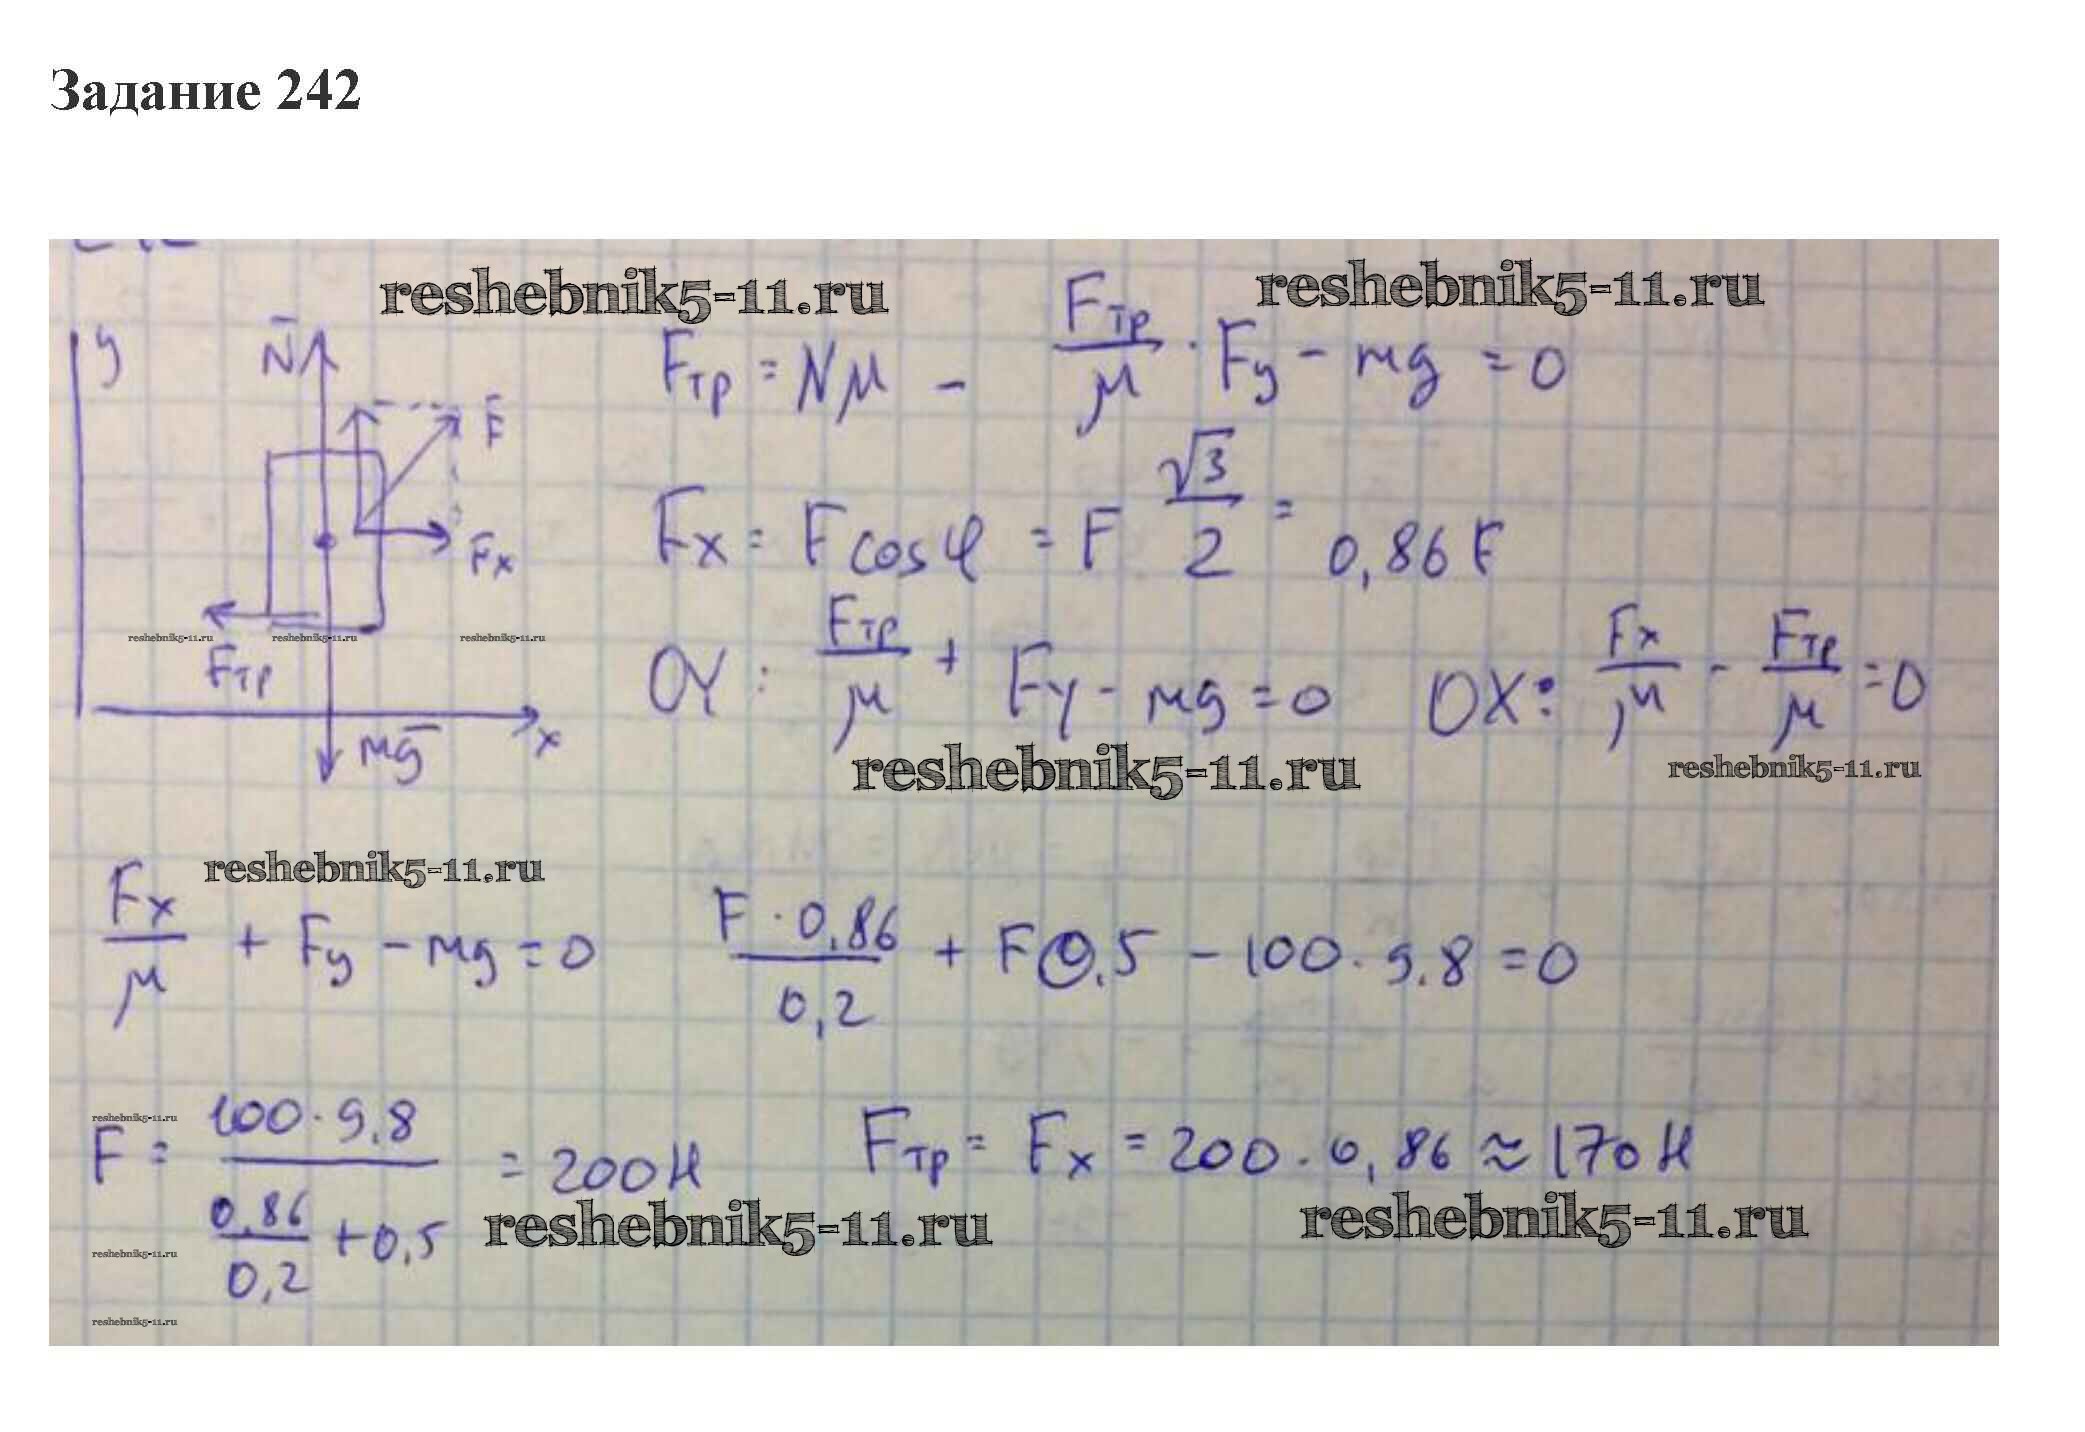 Задание 242
reshebnik5-11.ru reshebnik5-11.ru
y N̄ F̄ Fx
Fтр = Nμ - Fтр/μ · Fy - mg = 0
Fx = F cosφ = F √3/2 = 0,86 F
reshebnik5-11.ru reshebnik5-11.ru reshebnik5-11.ru
Fтр
x
mḡ
OY: Fтр/μ + Fy - mg = 0 OX: Fx/μ - Fтр/μ = 0
reshebnik5-11.ru reshebnik5-11.ru
reshebnik5-11.ru
Fx/μ + Fy - mg = 0 F · 0,86/0,2 + F 0,5 - 100 · 9,8 = 0
reshebnik5-11.ru
F = 100 · 9,8 / (0,86/0,2 + 0,5) = 200 Н Fтр = Fx = 200 · 0,86 ≈ 170 Н
reshebnik5-11.ru reshebnik5-11.ru
reshebnik5-11.ru
reshebnik5-11.ru